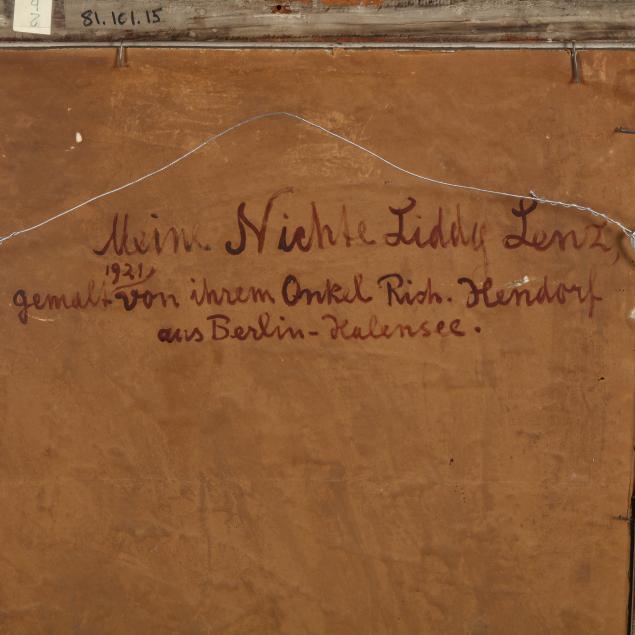 81.101.15
Meine Nichte Liddy Lenz,
1921
gemalt von ihrem Onkel Rich. Hendorf
aus Berlin-Halensee.